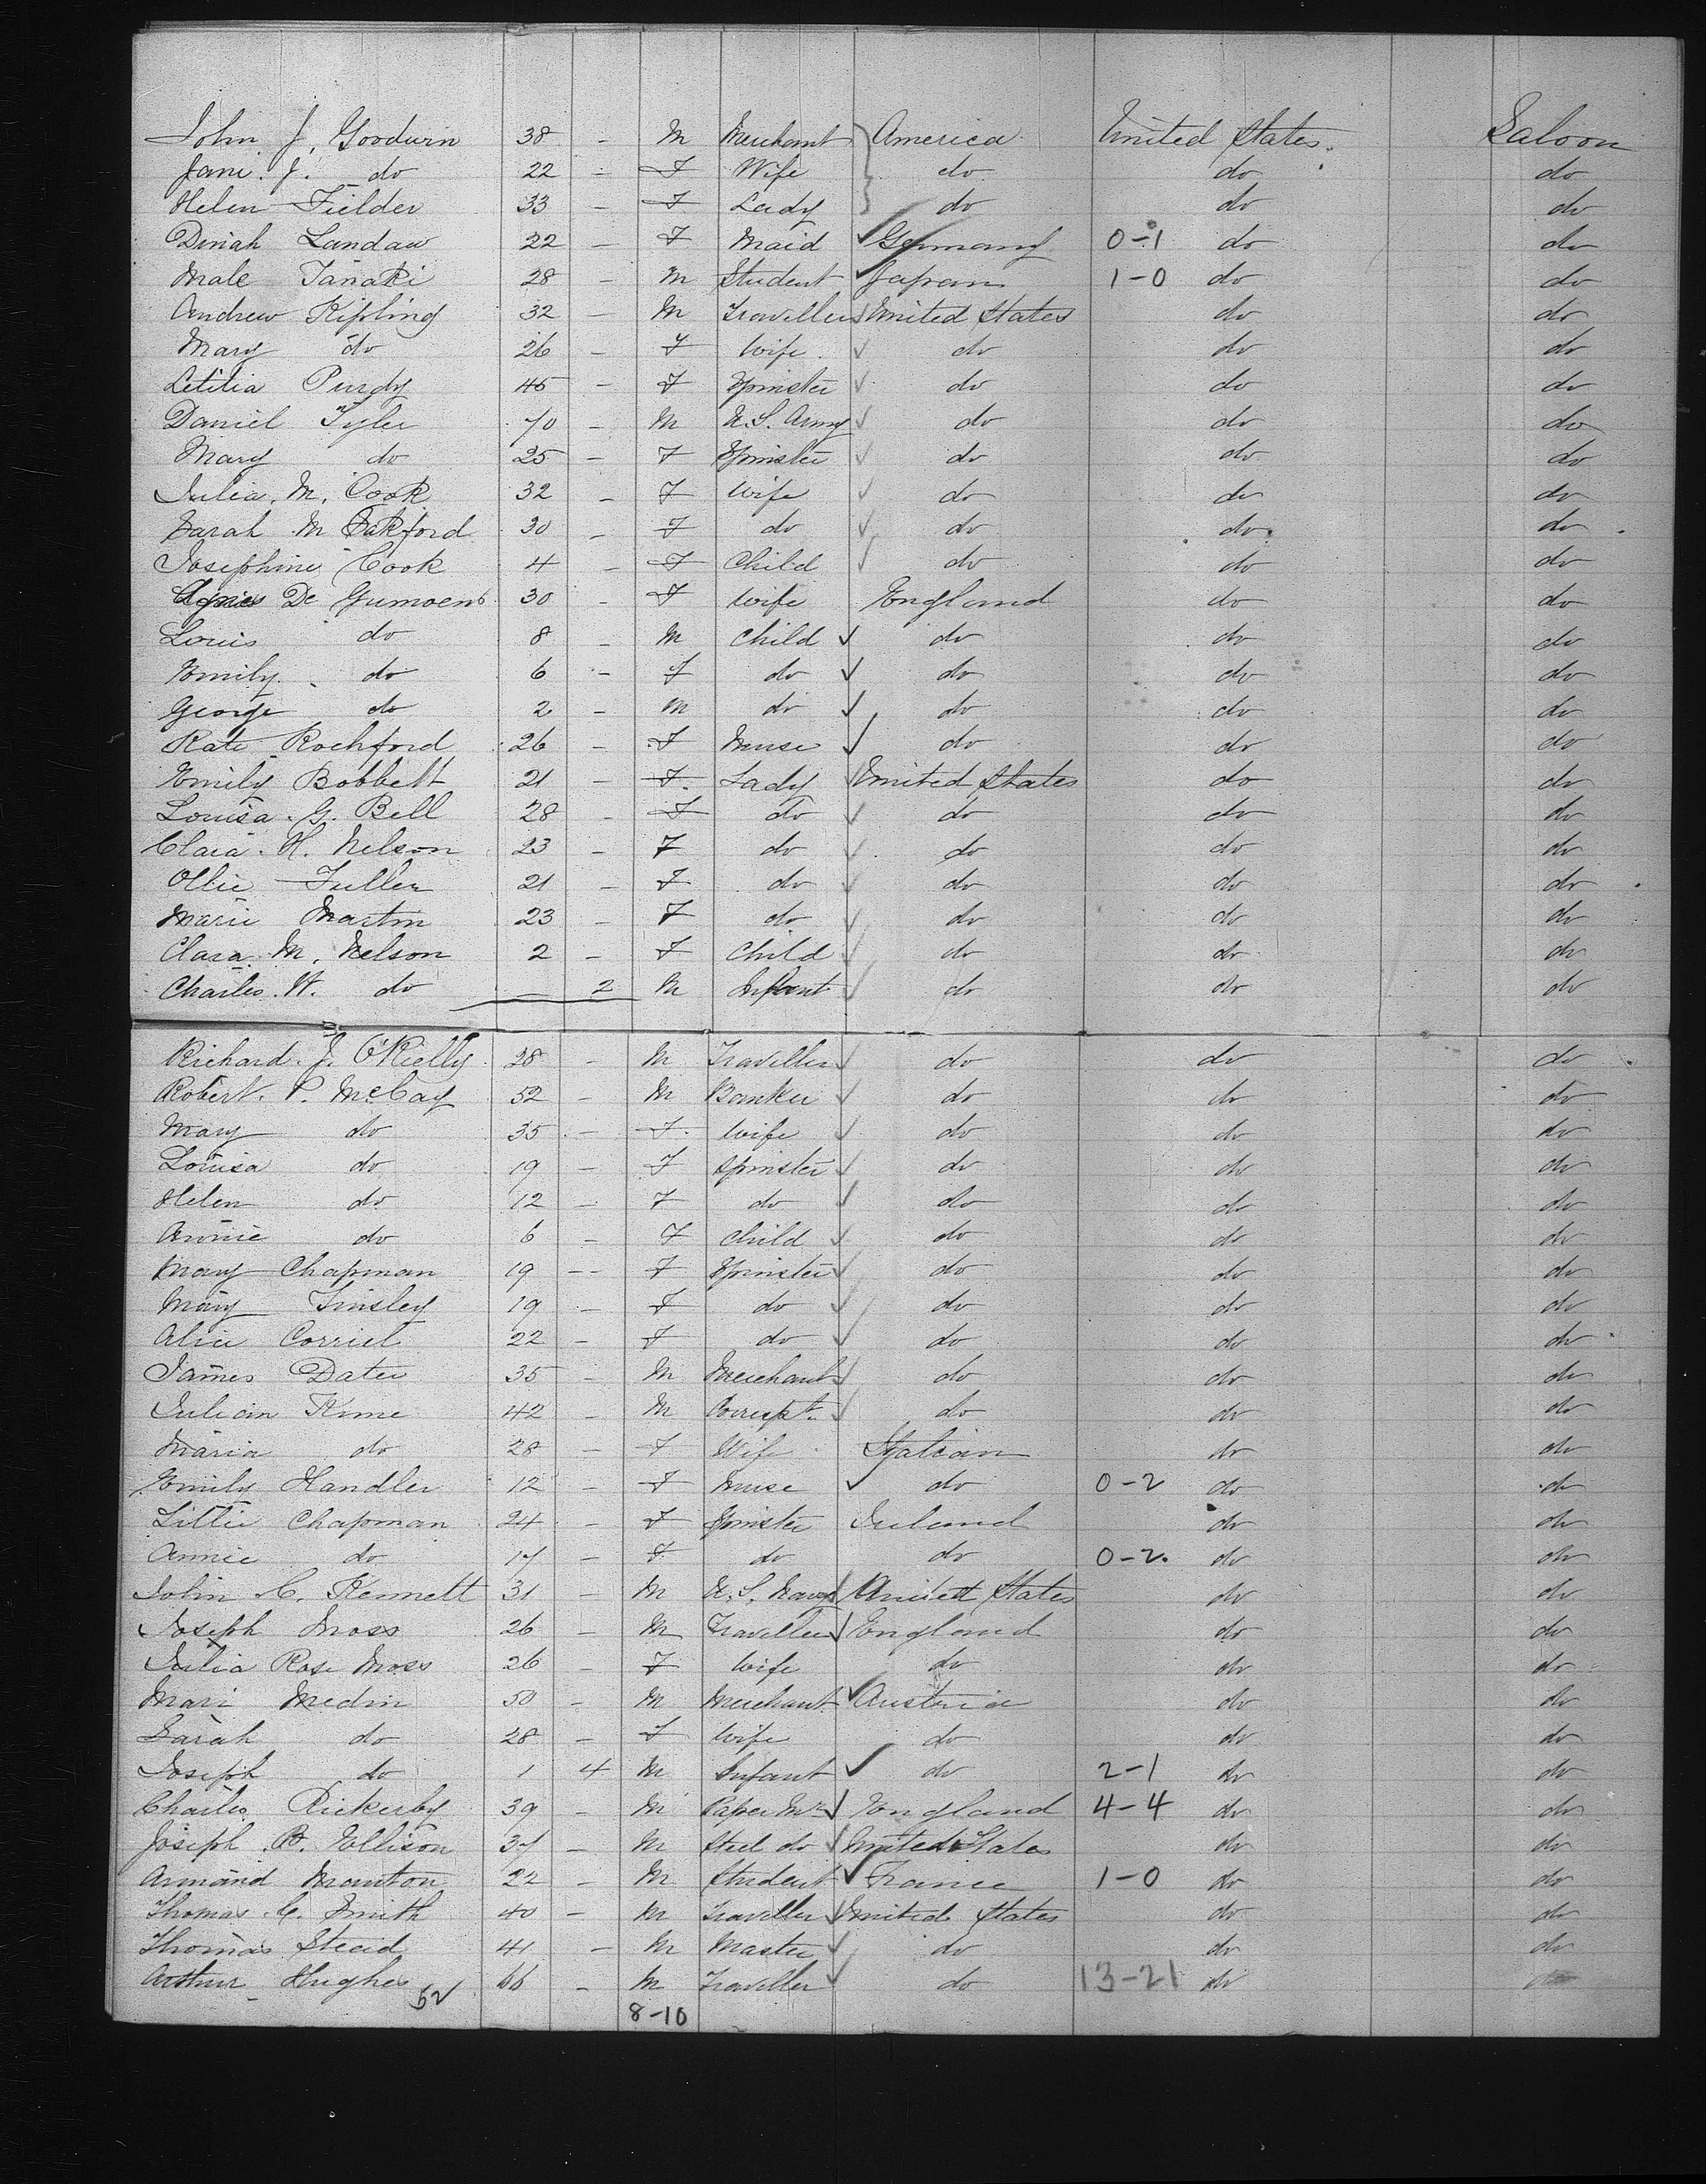 John J. Goodwin 38 - M Merchant America United States. Saloon
Jane. J. do 22 - F Wife do do do
Helen Fielder 33 - F Lady do do do
Dinah Landau 22 - F Maid Germany 0-1 do do
Male Tanaki 28 - M Student Japan 1-0 do do
Andrew Kipling 32 - M Traveller United States do do
Mary do 26 - F Wife do do do
Letitia Purdy 45 - F Spinster do do do
Daniel Tyler 70 - M U.S. Army do do do
Mary do 25 - F Spinster do do do
Julia. M. Cook 32 - F Wife do do do
Sarah M Oakford 30 - F do do do do
Josephine Cook 4 - F Child do do do
Agnes De Gumoens 30 - F Wife England do do
Louis do 8 - M Child do do do
Emily do 6 - F do do do do
George do 2 - M do do do do
Kate Rochford 26 - F Nurse do do do
Emily Bobbett 21 - F. Lady United States do do
Louisa. G. Bell 28 - F do do do do
Clara. H. Nelson 23 - F do do do do
Ollie Fuller 21 - F do do do do
Marie Martin 23 - F do do do do
Clara. M. Nelson 2 - F Child do do do
Charles. H. do - 2 M Infant do do do
Richard. J. O'Rielly 28 - M Traveller do do do
Robert. P. McCay 52 - M Banker do do do
Mary do 35 - F. Wife do do do
Louisa do 19 - F Spinster do do do
Helen do 12 - F do do do do
Annie do 6 - F Child do do do
Mary Chapman 19 - F Spinster do do do
Mary Tinsley 19 - F do do do do
Alice Corriel 22 - F do do do do
James Dater 35 - M Merchant do do do
Julian Kune 42 - M Correspt. do do do
Maria do 28 - F Wife Italian do do
Emily Handler 12 - F Nurse do 0-2 do do
Lillie Chapman 24 - F Spinster Ireland do do
Annie do 17 - F do do 0-2. do do
John C. Kennett 31 - M U.S. Navy United States do do
Joseph Moss 26 - M Traveller England do do
Julia Rose Moss 26 - F Wife do do do
Mari Medin 50 - M Merchant Austria do do
Sarah do 28 - F Wife do do do
Joseph do 1 4 M Infant do 2-1 do do
Charles Rickerby 39 - M Paper Mr England 4-4 do do
Joseph B. Ellison 37 - M Steel do United States do do
Armand Mouton 22 - M Student France 1-0 do do
Thomas C. Smith 40 - M Traveller United States do do
Thomas Steaid 41 - M Master do do do
Arthur Hughes 66 - M Traveller do 13-21 do do
52 8-10